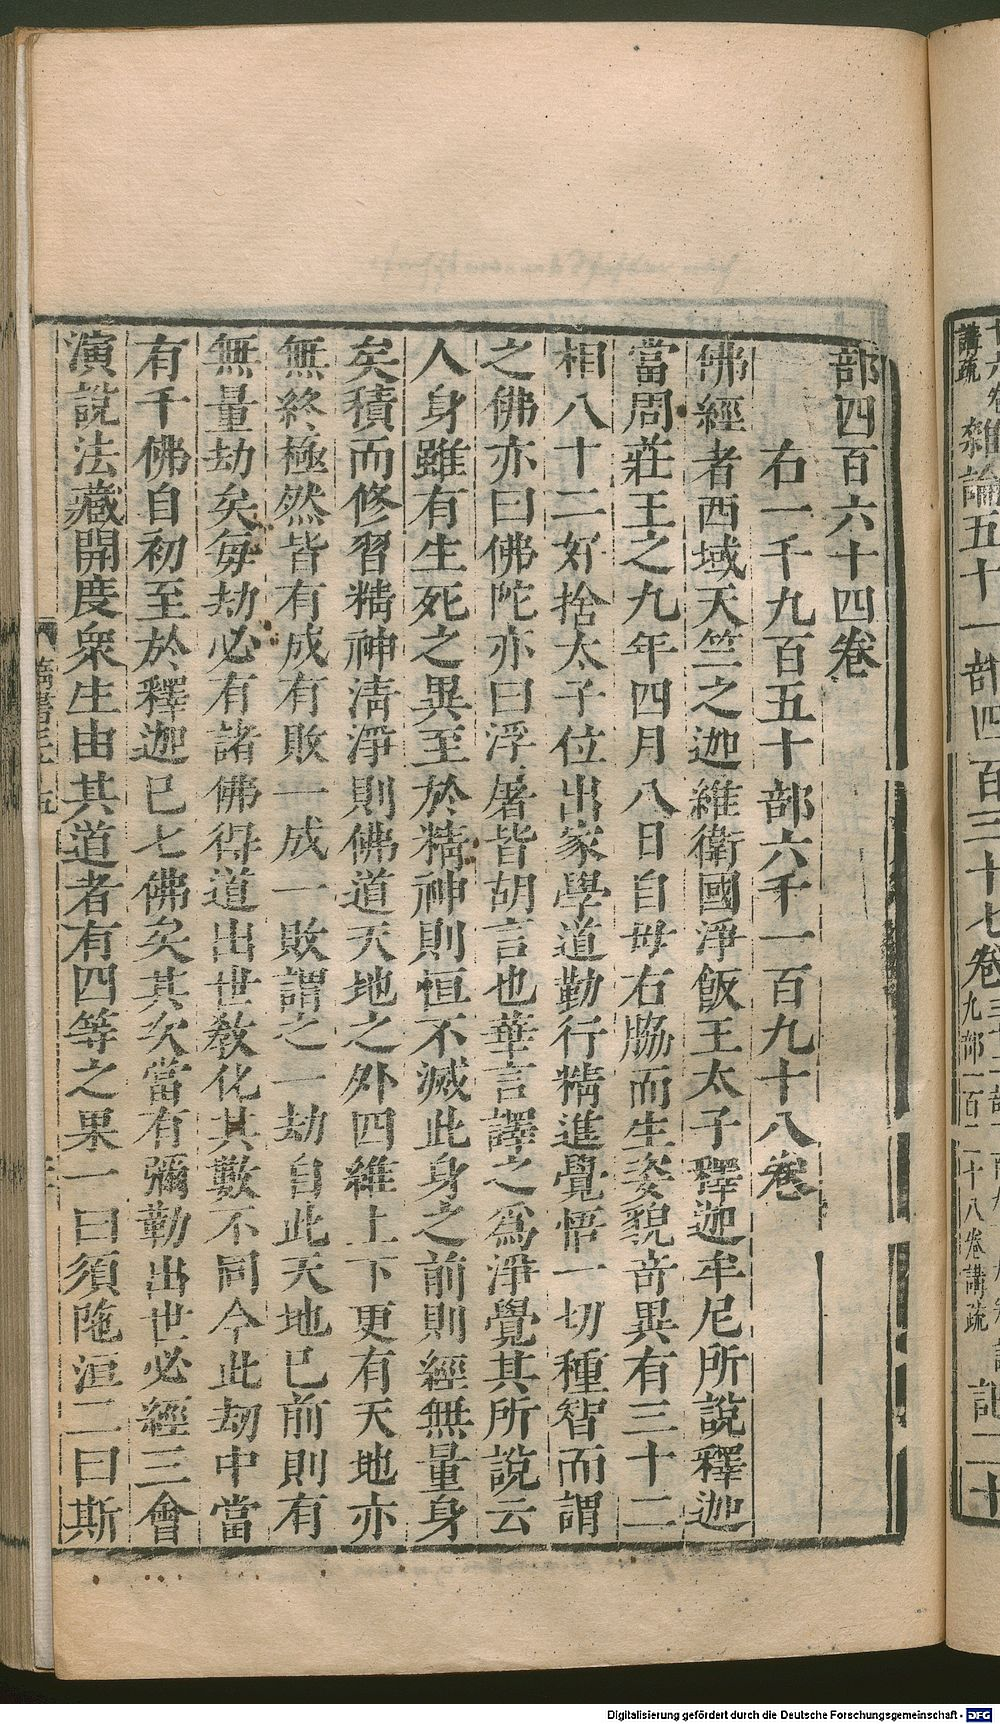 部四百六十四卷
右一千九百五十部六千一百九十八卷
佛經者西域天竺之迦維衛國淨飯王太子釋迦牟尼所說釋迦
當周莊王之九年四月八日自母右脇而生姿貌奇異有三十二
相八十二好捨太子位出家學道勤行精進覺悟一切種智而謂
之佛亦曰佛陀亦曰浮屠皆胡言也華言譯之爲淨覺其所說云
人身雖有生死之異至於精神則恒不滅此身之前則經無量身
矣積而修習精神清淨則佛道天地之外四維上下更有天地亦
無終極然皆有成有敗一成一敗謂之一劫自此天地已前則有
無量劫矣每劫必有諸佛得道出世教化其數不同今此劫中當
有千佛自初至於釋迦已七佛矣其次當有彌勒出世必經三會
演說法藏開度衆生由其道者有四等之果一曰須陁洹二曰斯
講疏
雜論五十一部四百三十七卷
Digitalisierung gefördert durch die Deutsche Forschungsgemeinschaft - DFG